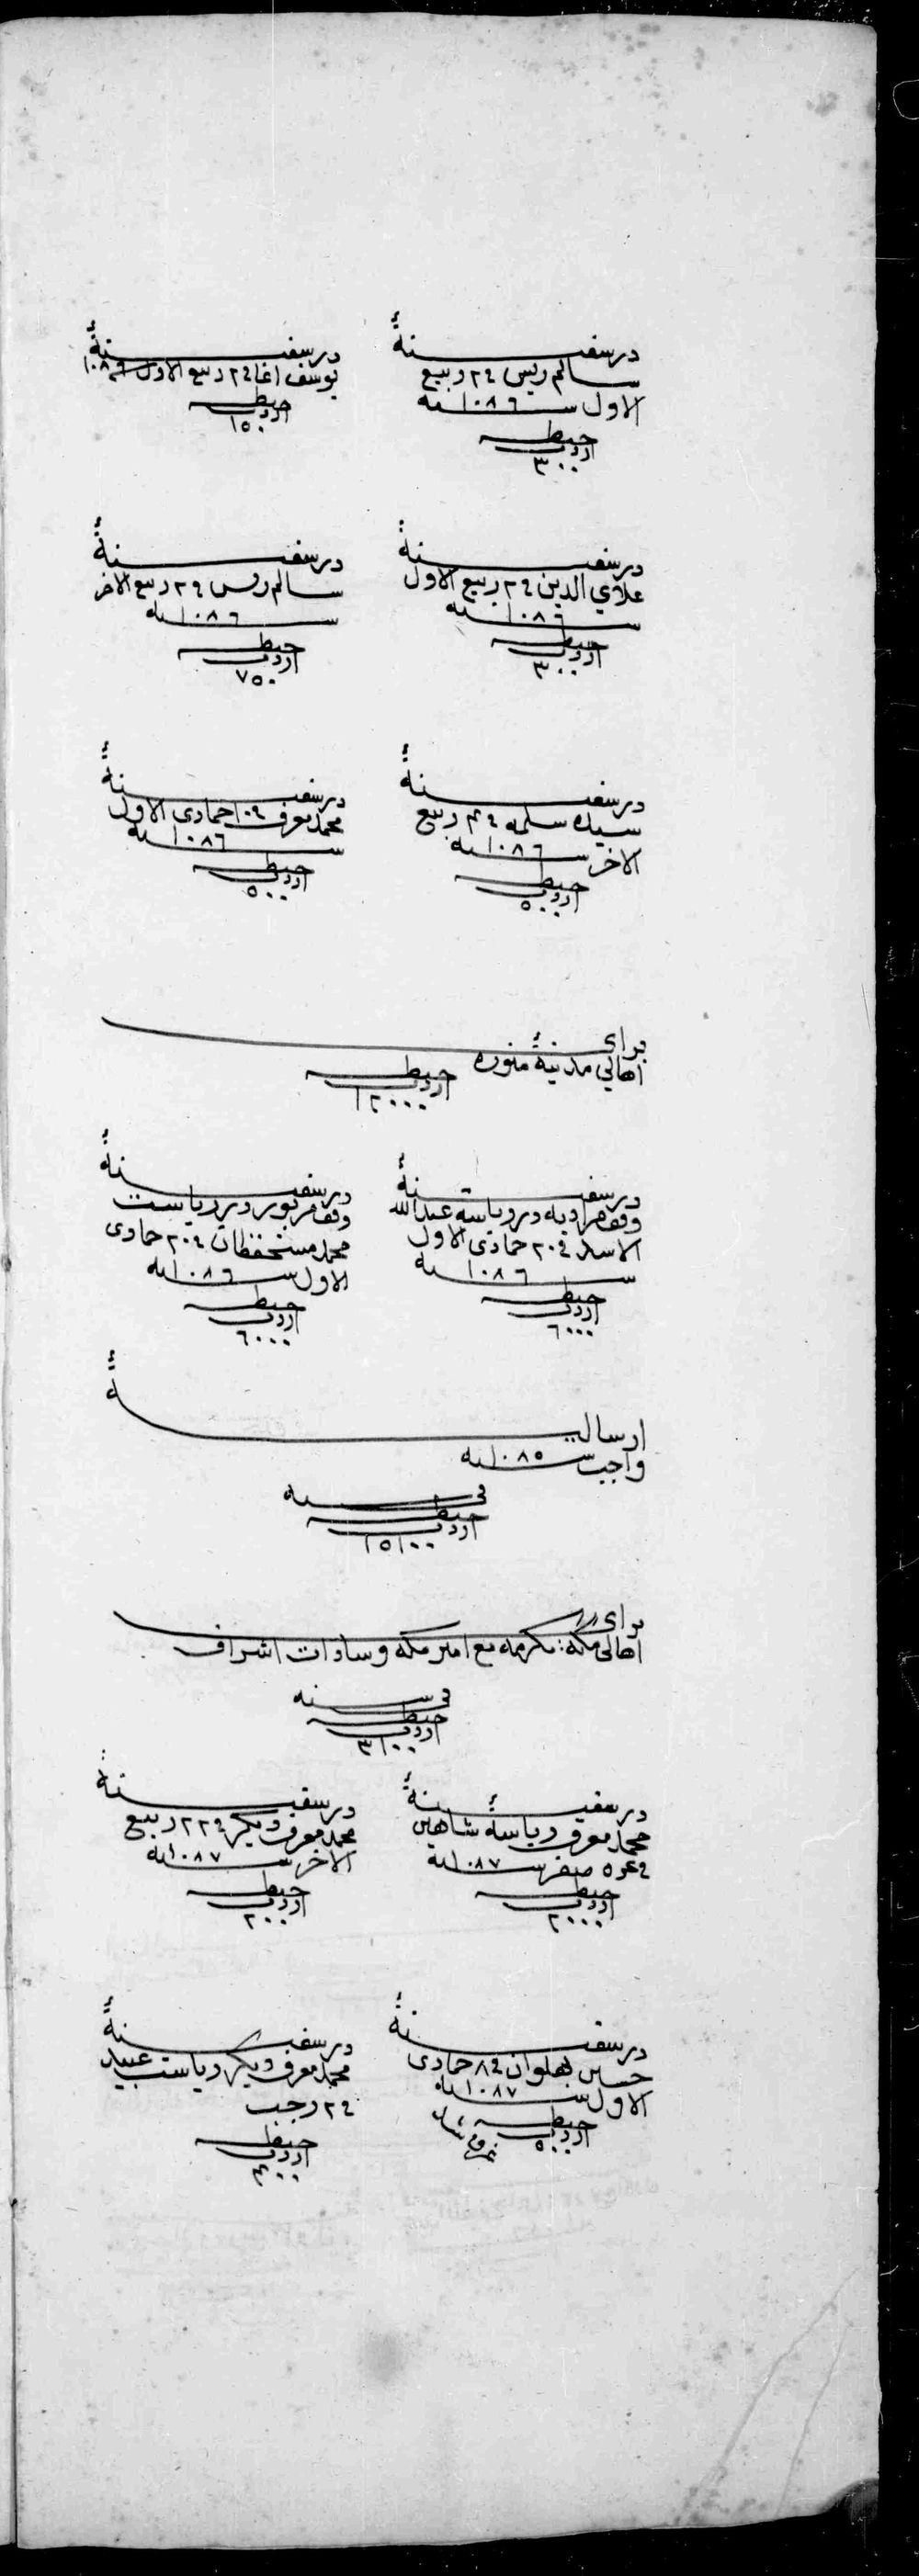 در سفینهٔ
سالم ریس ٢٤ ربیع
الاول سنه ١٠٨٦
حنطه
اردب
٣٠٠
در سفینهٔ
یوسف اغا ٢٤ ربیع الاول سنه ١٠٨٦
حنطه
اردب
١٥٠
در سفینهٔ
علای الدین ٢٤ ربیع الاول
سنه ١٠٨٦
حنطه
اردب
٣٠٠
در سفینهٔ
سالم ریس ٢٤ ربیع الاخر
سنه ١٠٨٦
حنطه
اردب
٧٥٠
در سفینهٔ
سیده سلمه ربیع
الاخر سنه ١٠٨٦
حنطه
اردب
٥٠٠
در سفینهٔ
محمد معرف جمادی الاول
سنه ١٠٨٦
حنطه
اردب
٥٠٠
برای
اهالی مدینهٔ منوره
حنطه
اردب
١٢٠٠٠
در سفینهٔ
وقف مرادیه در ریاسة عبد الله
الاسد فی ٢٠ جمادی الاول
سنه ١٠٨٦
حنطه
اردب
٦٠٠٠
در سفینهٔ
وقف مزبور در ریاست
محمد مستحفظان فی ٢٠ جمادی
الاول سنه ١٠٨٦
حنطه
اردب
٦٠٠٠
ارسالیهٔ
واجب سنه ١٠٨٥
فی سنه
حنطه
اردب
١٥١٠٠
برای
اهالی مکهٔ مکرمه مع امیر مکه و سادات اشراف
فی سنه
حنطه
اردب
٣١٠٠
در سفینهٔ
محمد معرف ریاسهٔ شاهین
فی غره صفر سنه ١٠٨٧
حنطه
اردب
٢٠٠٠
در سفینهٔ
محمد معرف دیکر فی ٢٢ ربیع
الاخر سنه ١٠٨٧
حنطه
اردب
٢٠٠
در سفینهٔ
حسین بهلوان فی ٨ جمادی
الاول سنه ١٠٨٧
حنطه
اردب
٥٠٠
در سفینهٔ
محمد معرف دیکر ریاست عبید
فی ٢ رجب
حنطه
اردب
٤٠٠